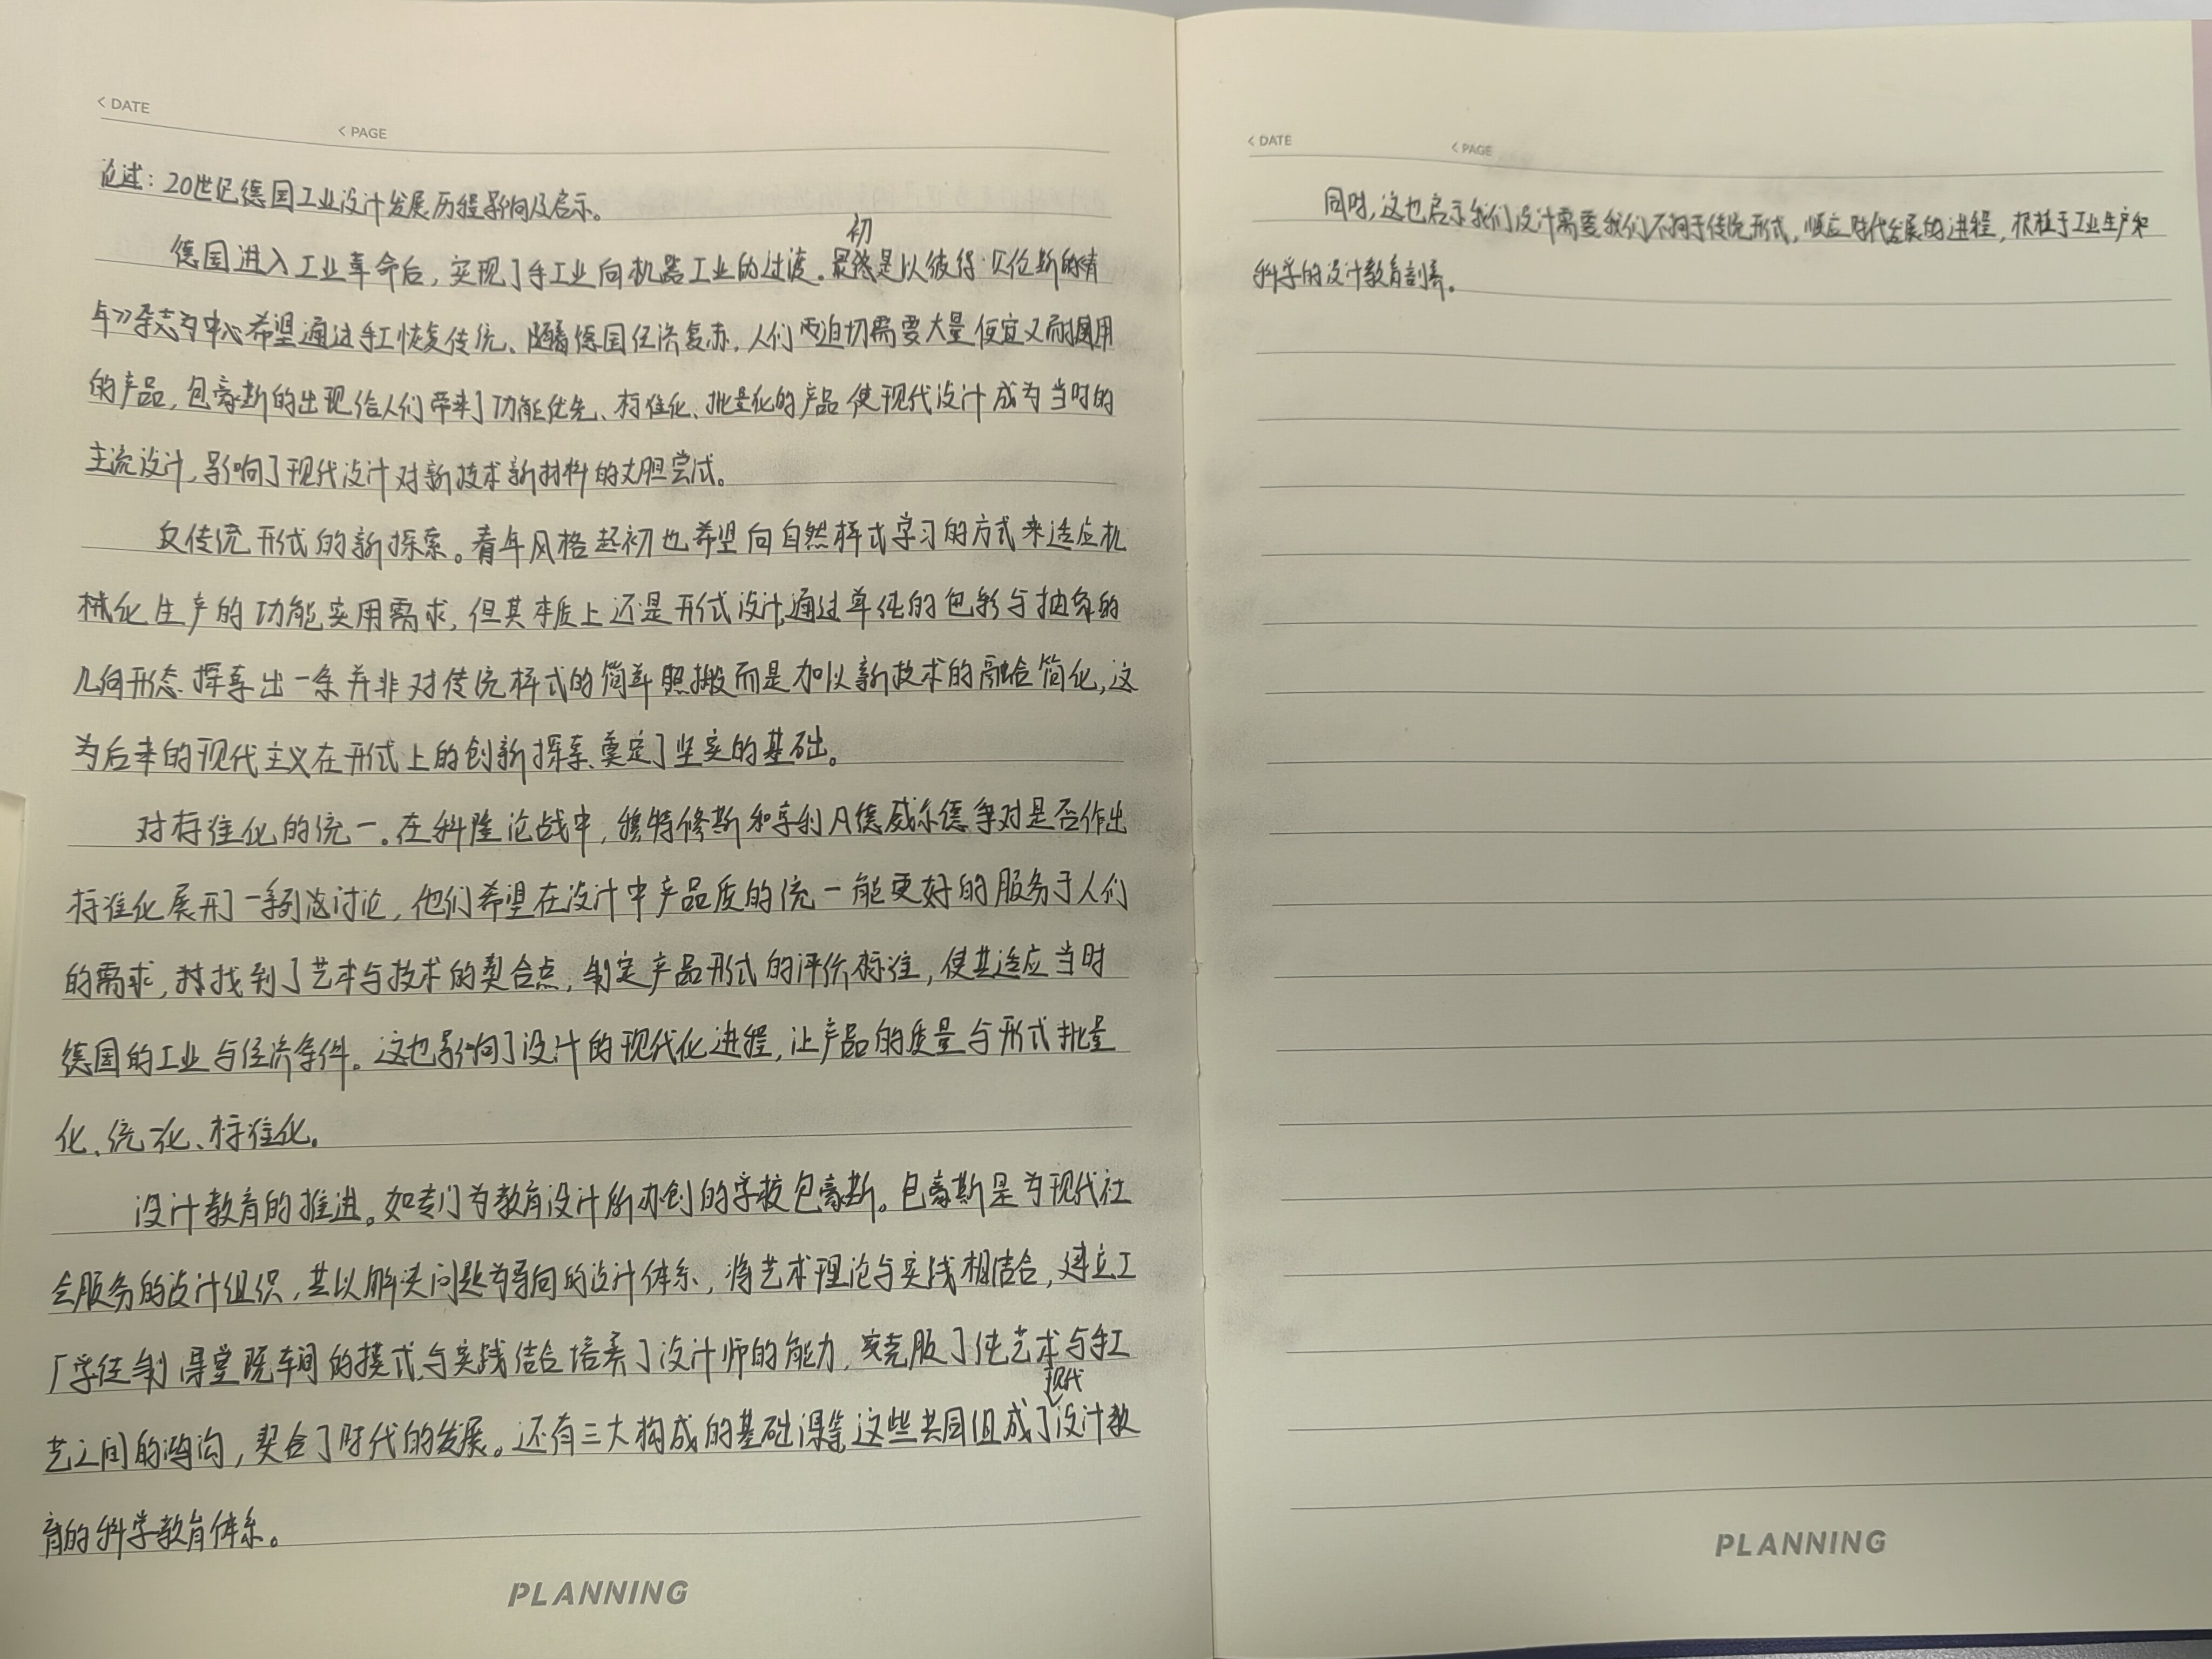 < DATE
< PAGE
论述：20世纪德国工业设计发展历程影响及启示。
初
德国进入工业革命后，实现了手工业向机器工业的过渡。最是以彼得·贝伦斯的青
年》杂志为中心希望通过手工恢复传统、随着德国经济复苏，人们迫切需要大量便宜又耐用
的产品，包豪斯的出现给人们带来了功能优先、标准化、批量化的产品使现代设计成为当时的
主流设计，影响了现代设计对新技术新材料的大胆尝试。
反传统形式的新探索。青年风格起初也希望向自然样式学习的方式来适应机
械化生产的功能实用需求，但其本质上还是形式设计，通过单纯的色彩与抽象的
几何形态探索出一条并非对传统样式的简单照搬而是加以新技术的融合简化，这
为后来的现代主义在形式上的创新探索、奠定了坚实的基础。
对标准化的统一。在科隆论战中，穆特修斯和亨利凡德威尔德争对是否作出
标准化展开了一系列讨论，他们希望在设计中产品质的统一能更好的服务于人们
的需求，找到了艺术与技术的契合点，制定产品形式的评价标准，使其适应当时
德国的工业与经济条件。这也影响了设计的现代化进程，让产品的质量与形式批量
化、统一化、标准化。
设计教育的推进。如专门为教育设计所办创的学校包豪斯。包豪斯是为现代社
会服务的设计组织，其以解决问题为导向的设计体系，将艺术理论与实践相结合，建立工
厂学徒制 得堂既车间的模式，与实践结合培养了设计师的能力，克服了纯艺术与手工
现代
艺之间的鸿沟，契合了时代的发展。还有三大构成的基础课等，这些共同组成了设计教
育的科学教育体系。
PLANNING
< DATE
< PAGE
同时，这也启示我们设计需要我们不拘于传统形式，顺应时代发展的进程，根植于工业生产和
科学的设计教育。
PLANNING